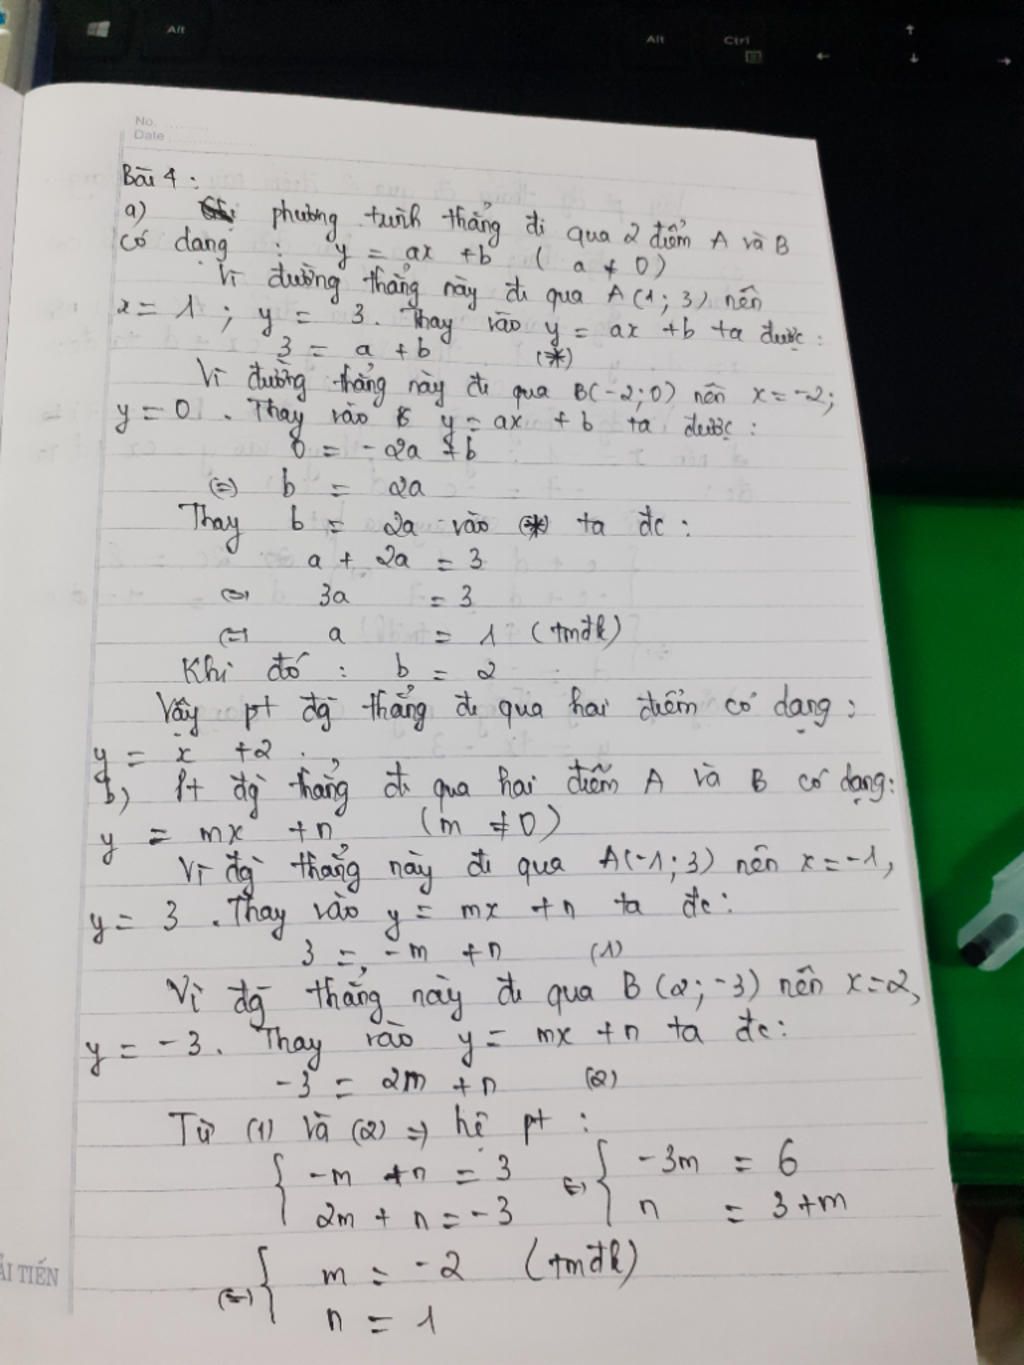 Alt
Alt
Ctrl
No.
Date
Bài 4 :
a) phương trình thẳng đi qua 2 điểm A và B
có dạng : y = ax + b ( a ≠ 0 )
Vì đường thẳng này đi qua A(1; 3) nên
x = 1 ; y = 3. Thay vào y = ax + b ta được :
3 = a + b (*)
Vì đường thẳng này đi qua B(-2; 0) nên x = -2;
y = 0 . Thay vào y = ax + b ta được :
0 = -2a + b
(=) b = 2a
Thay b = 2a vào (*) ta đc :
a + 2a = 3
(=) 3a = 3
(=) a = 1 (tmđk)
Khi đó : b = 2
Vậy pt đg` thẳng đi qua hai điểm có dạng :
y = x + 2 .
b) Pt đg` thẳng đi qua hai điểm A và B có dạng:
y = mx + n (m ≠ 0)
Vì đg` thẳng này đi qua A(-1; 3) nên x = -1,
y = 3 . Thay vào y = mx + n ta đc :
3 = -m + n (1)
Vì đg` thẳng này đi qua B(2; -3) nên x = 2,
y = -3. Thay vào y = mx + n ta đc :
-3 = 2m + n (2)
Từ (1) và (2) => hệ pt :
{ -m + n = 3 (=) { -3m = 6
2m + n = -3 n = 3 + m
(=) { m = -2 (tmđk)
n = 1
ẢI TIẾN